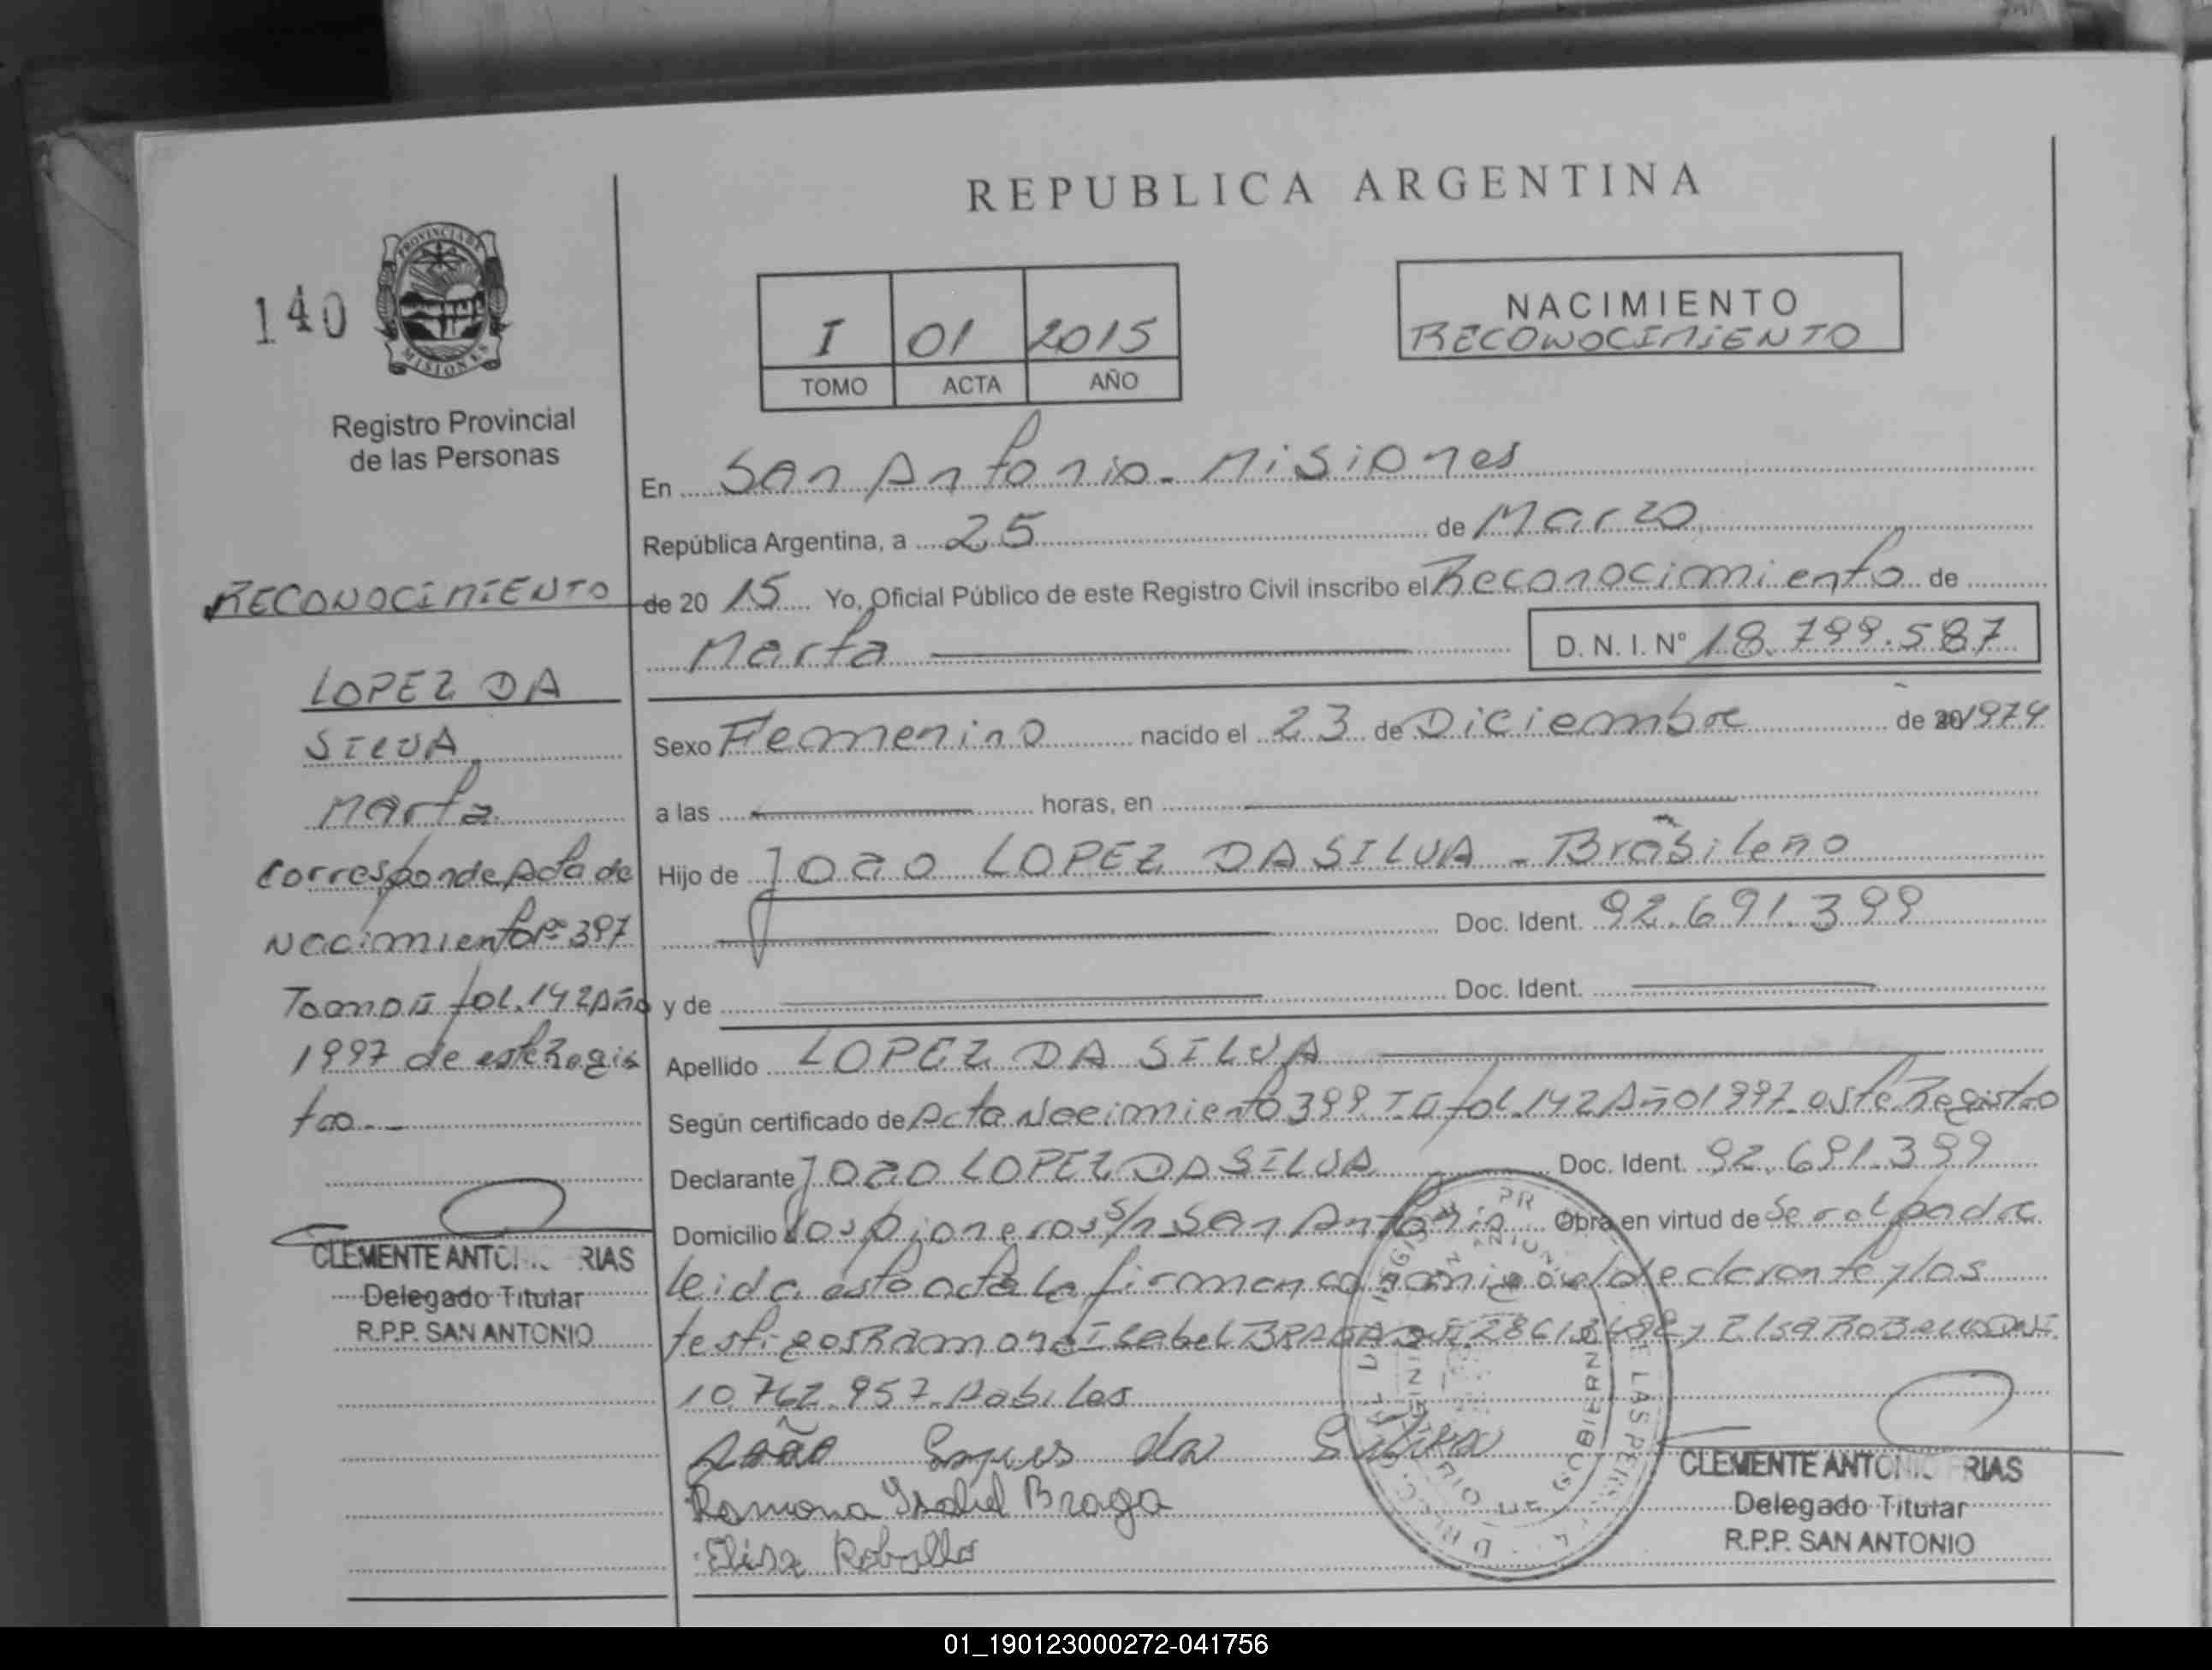 REPUBLICA ARGENTINA
140
PROVINCIA DE
MISIONES
Registro Provincial
de las Personas
I 01 2015
TOMO ACTA AÑO
NACIMIENTO
RECONOCIMIENTO
En San Antonio - Misiones
República Argentina, a 25 de Marzo
de 20 15 Yo, Oficial Público de este Registro Civil inscribo el Reconocimiento de
Marta D. N. I. N° 18.799.587
Sexo Femenino nacido el 23 de Diciembre de 20 1974
a las horas, en
Hijo de Joao LOPEZ DA SILVA - Brasileño
Doc. Ident. 92.691.399
y de Doc. Ident.
Apellido LOPEZ DA SILVA
Según certificado de Acta Nacimiento 399 T II fol. 142 Año 1997 este Registro
Declarante Joao LOPEZ DA SILVA Doc. Ident. 92.691.399
Domicilio Los pioneros s/n San Antonio Obra en virtud de Ser el padre
leida esta acta la firman conmigo el declarante y los
testigos Ramona Isabel BRAGA y Elsa Roballo DNI
10.762.957 Habiles
João Lopes da Silva
Ramona Isabel Braga
Elisa Roballo
RECONOCIMIENTO
LOPEZ DA
SILVA
Marta
Corresponde Acta de
Nacimiento Nº 397
Tomo II fol. 142 Año
1997 de este Regis
tro.-
CLEMENTE ANTONIO RIAS
Delegado Titular
R.P.P. SAN ANTONIO
CLEMENTE ANTONIO FRIAS
Delegado Titular
R.P.P. SAN ANTONIO
01_190123000272-041756